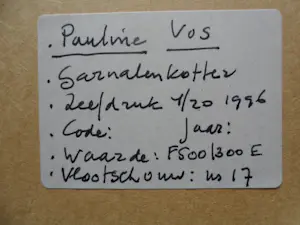 . Pauline Vos
. Garnalenkotter
. Zeefdruk 7/20 1996
. Code: Jaar:
. Waarde: F500/300 E
. Vlootschouw: ns 17